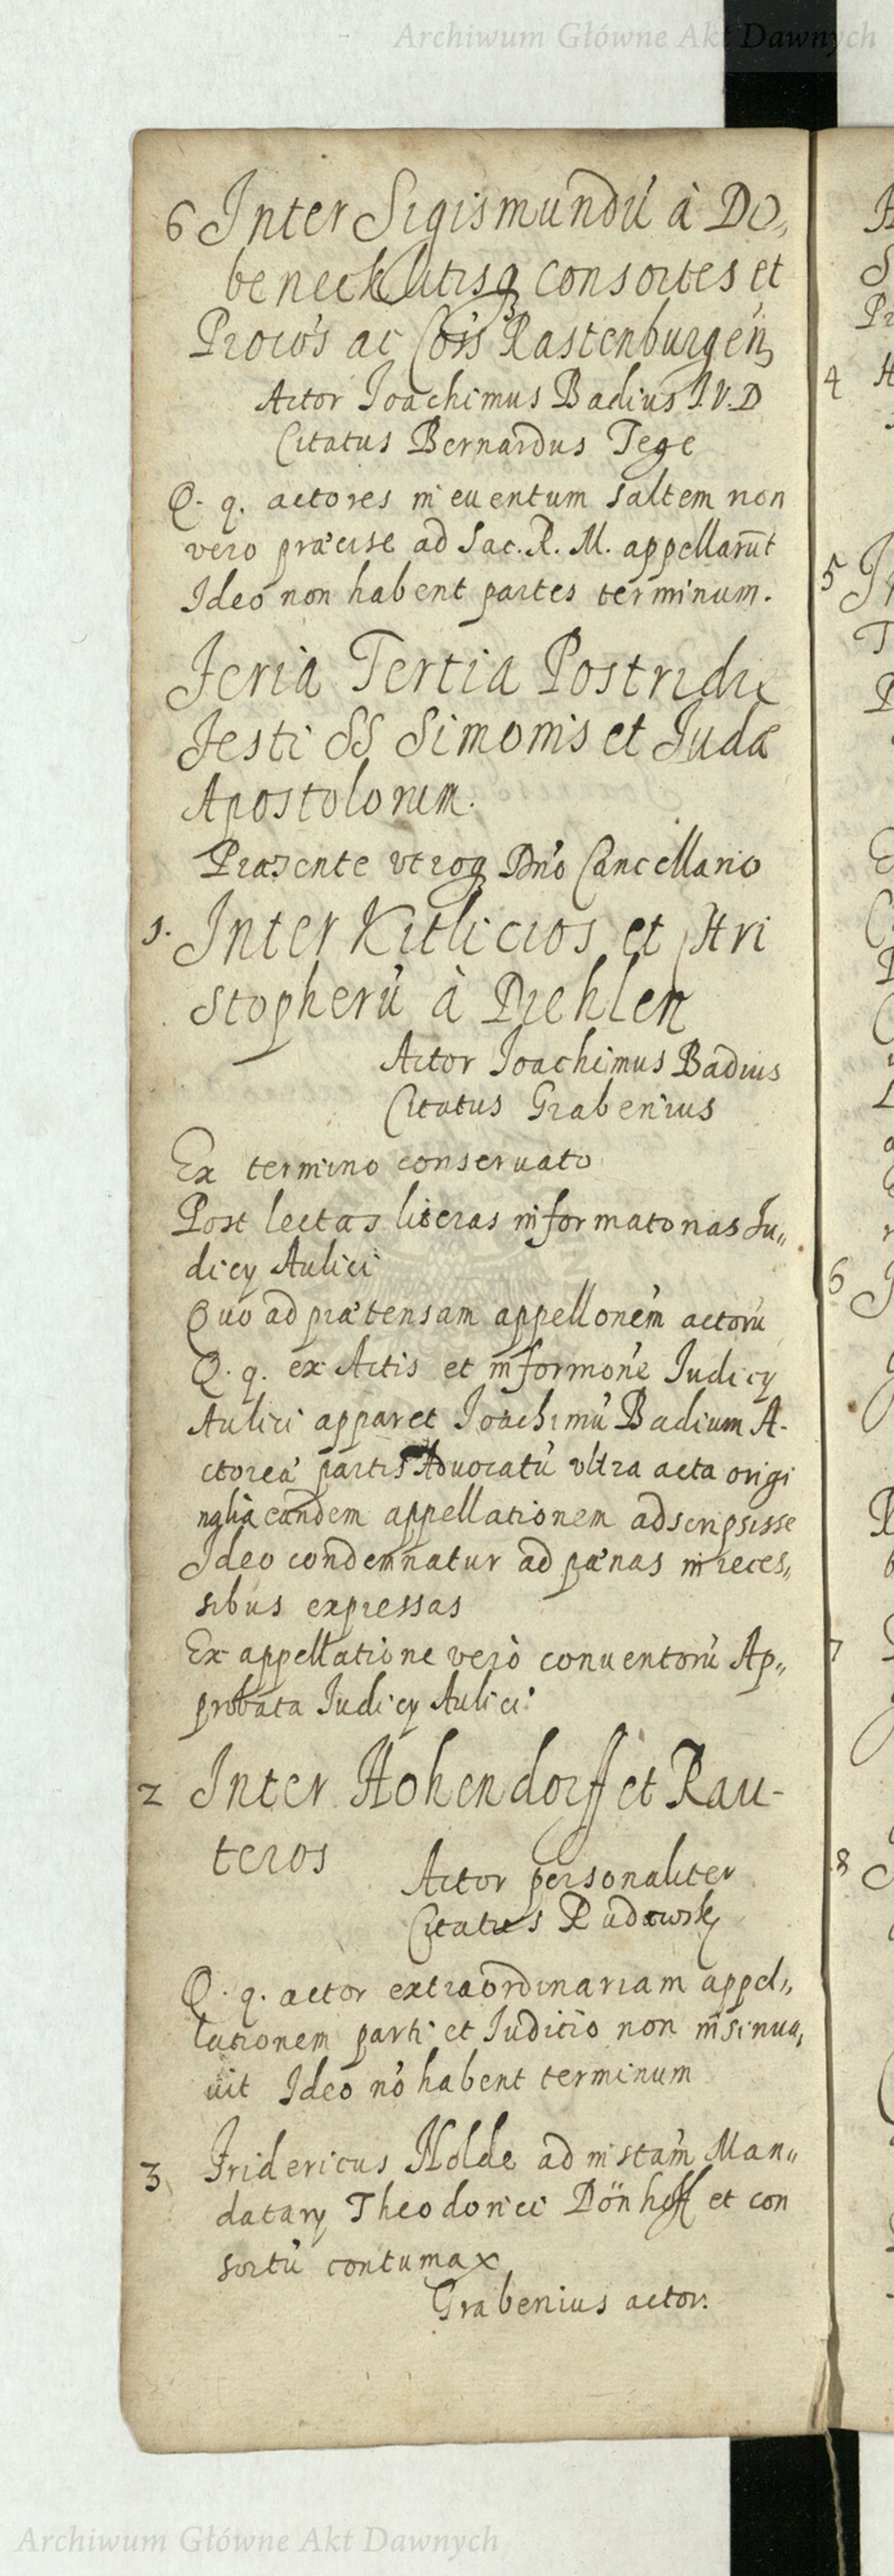 Archiwum Główne Akt Dawnych
6 Inter Sigismundũ à Do,
beneck litisq consortes et
Procõs ac Cõis Rastenburgeñ
Actor Joachimus Badius J.V.D
Citatus Bernardus Tege
Q. q. actores in euentum saltem non
vero præcise ad Sac. R. M. appellarũt
Ideo non habent partes terminum.
Feria Tertia Postridie
Festi SS Simonis et Judæ
Apostolorum.
Præsente vtroq Dño Cancellario
1. Inter Kitlicios et Chri
stopherũ à Diehlen
Actor Joachimus Badius
Citatus Grabenius
Ex termino conseruato
Post lectas literas informatorias Ju„
dicy Aulici
Quo ad prætensam appellonẽm actorũ
Q. q. ex Actis et informone Judicy
Aulici apparet Joachimũ Badium A-
ctoreã partis Aduocatũ vltra acta origi
nalia eandem appellationem adscripsisse
Ideo condemnatur ad pænas in reces„
sibus expressas
Ex appellatione verò conuentorũ Ap„
probata Judicy Aulici
2 Inter Hohendorff et Rau-
teros
Actor personaliter
Citatus Rudawsky
Q. q. actor extraordinariam appel„
lationem parti et Juditio non insinua,
uit Ideo nõ habent terminum
3 Fridericus Nolde ad instam̃ Man„
datary Theodorici Dönhoff et con
sortũ contumax
Grabenius actor.
4
5
6
7
8
Archiwum Główne Akt Dawnych